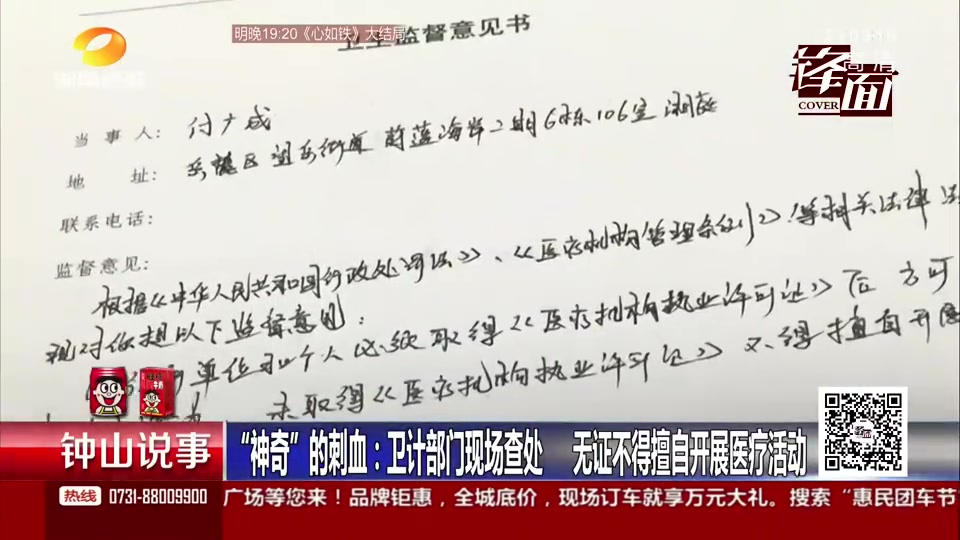 明晚19:20《心如铁》大结局
卫生监督意见书
锋面
COVER
当事人：付广成
地址：岳麓区望岳街道蔚蓝海岸二期6栋106室湘庭
联系电话：
监督意见：
根据《中华人民共和国行政处罚法》、《医疗机构管理条例》等相关法律法
现对你提以下监督意见：
单位和个人必须取得《医疗机构执业许可证》后方可
未取得《医疗机构执业许可证》不得擅自开展
钟山说事
“神奇”的刺血：卫计部门现场查处 无证不得擅自开展医疗活动
热线 0731-88009900 广场等您来！品牌钜惠，全城底价，现场订车就享万元大礼。搜索“惠民团车节